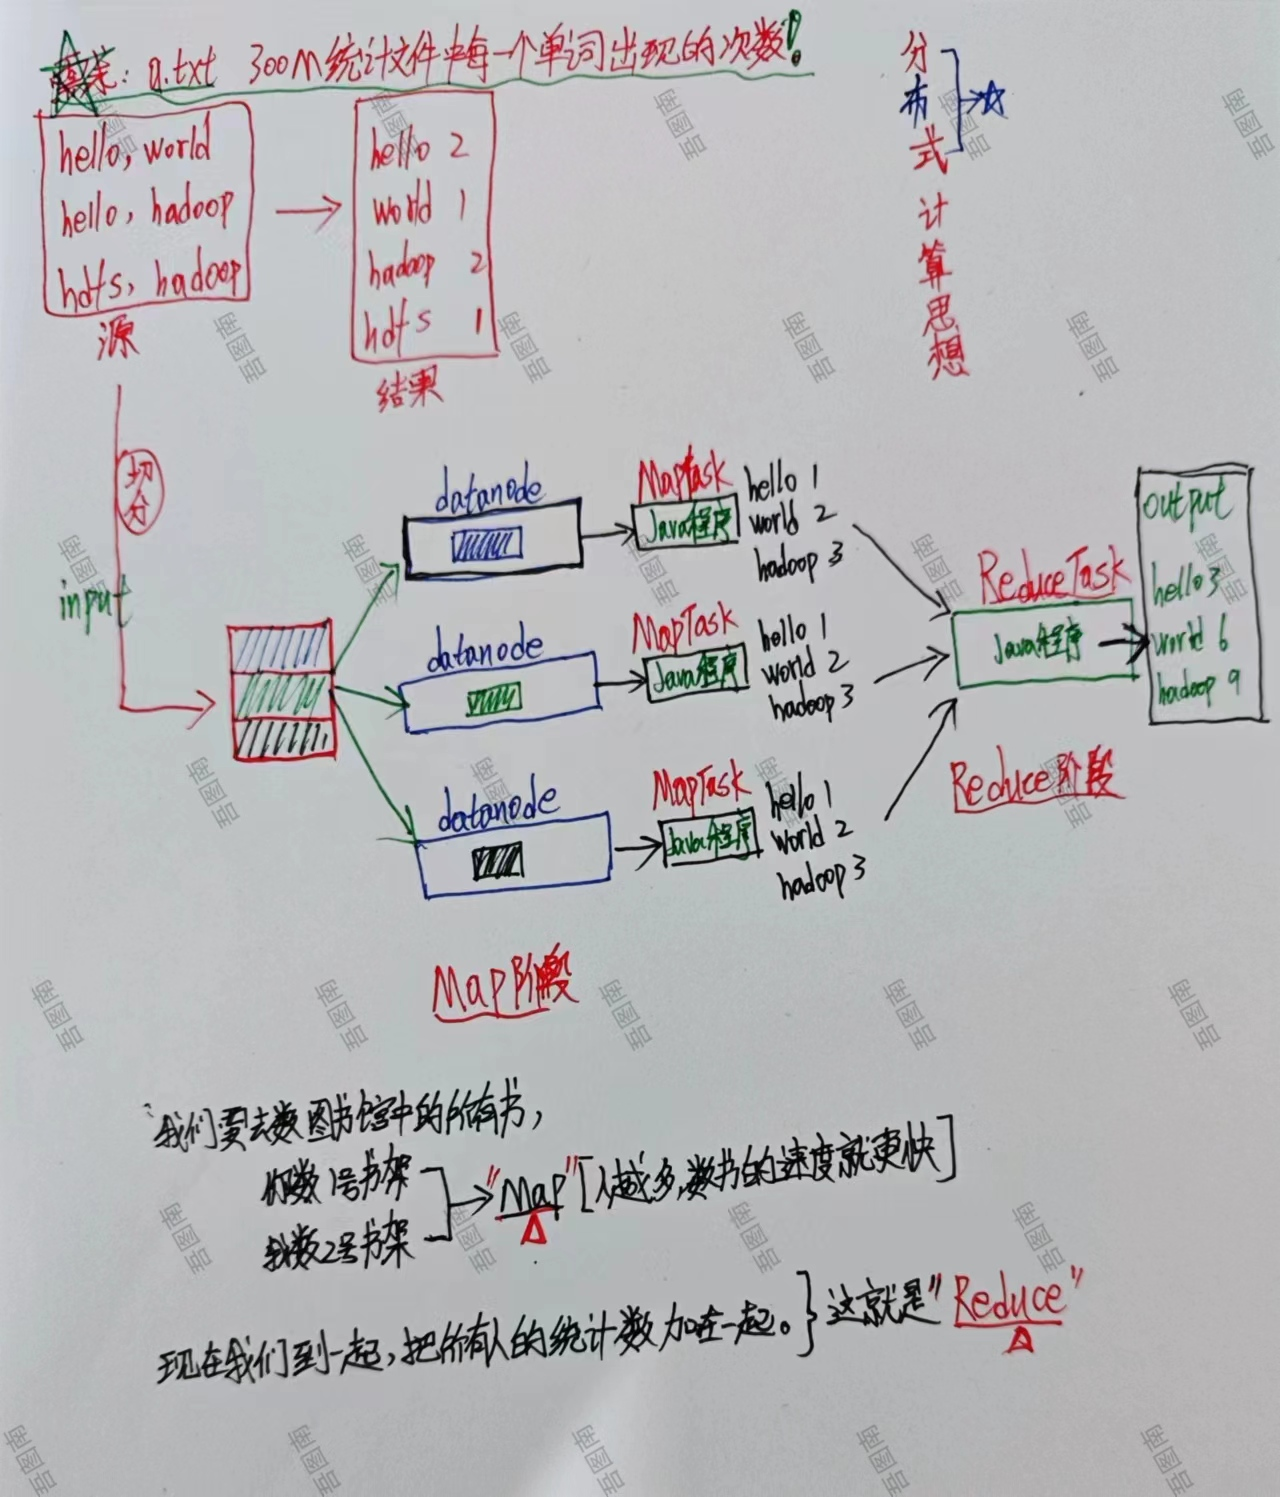 需求: a.txt 300M统计文件中每一个单词出现的次数!
hello, world
hello, hadoop
hdfs, hadoop
源
hello 2
world 1
hadoop 2
hdfs 1
结果
分布式计算思想
切分
input
datanode
MapTask
Java程序
hello 1
world 2
hadoop 3
datanode
MapTask
Java程序
hello 1
world 2
hadoop 3
datanode
MapTask
Java程序
hello 1
world 2
hadoop 3
ReduceTask
Java程序
output
hello 3
world 6
hadoop 9
Reduce阶段
Map阶段
我们要去数图书馆中的所有书,
你数1号书架
我数2号书架
"Map" [人越多,数书的速度就更快]
现在我们到一起,把所有人的统计数加在一起。} 这就是"Reduce"